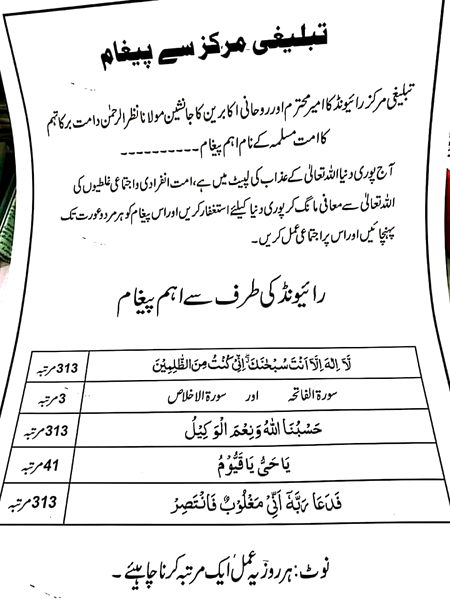 تبلیغی مرکز سے پیغام
تبلیغی مرکز رائیونڈ کا امیر محترم اور روحانی اکابرین کا جانشین مولانا نظر الرحمٰن دامت برکاتہم
کا امت مسلمہ کے نام اہم پیغام ----------
آج پوری دنیا اللہ تعالیٰ کے عذاب کی لپیٹ میں ہے، امت انفرادی و اجتماعی غلطیوں کی
اللہ تعالیٰ سے معافی مانگ کر پوری دنیا کیلئے استغفار کریں اور اس پیغام کو ہر مرد و عورت تک
پہنچائیں اور اس پر اجتماعی عمل کریں۔
رائیونڈ کی طرف سے اہم پیغام
لَآ اِلٰهَ اِلَّآ اَنْتَ سُبْحٰنَكَ اِنِّیْ كُنْتُ مِنَ الظّٰلِمِیْنَ 313 مرتبہ
سورۃ الفاتحہ اور سورۃ الاخلاص 3 مرتبہ
حَسْبُنَا اللّٰهُ وَنِعْمَ الْوَكِیْلُ 313 مرتبہ
یَا حَیُّ یَا قَیُّوْمُ 41 مرتبہ
فَدَعَا رَبَّهٗٓ اَنِّیْ مَغْلُوْبٌ فَانْتَصِرْ 313 مرتبہ
نوٹ: ہر روز یہ عمل ایک مرتبہ کرنا چاہیئے۔